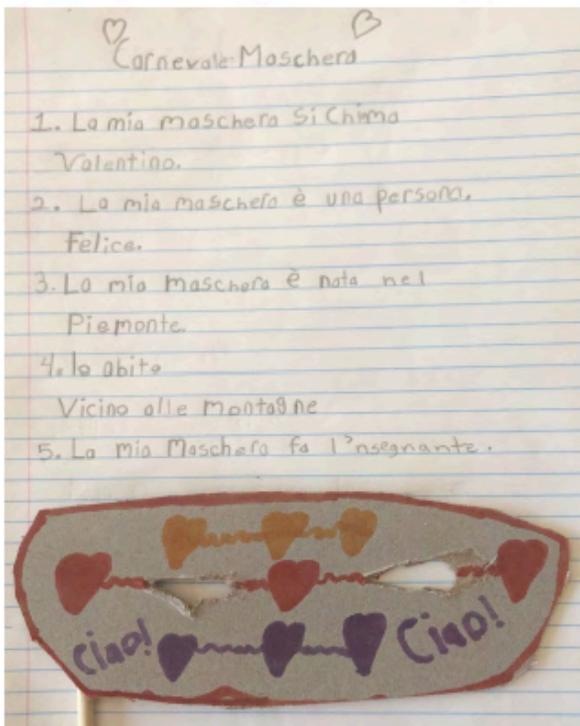 Carnevale Maschera
1. La mia maschera si Chima
Valentino.
2. La mia maschera è una persona.
Felice.
3. La mia maschera è nata nel
Piemonte.
4. Io abito
Vicino alle montagne
5. La mia Maschera fa l'nsegnante.
Ciao! Ciao!